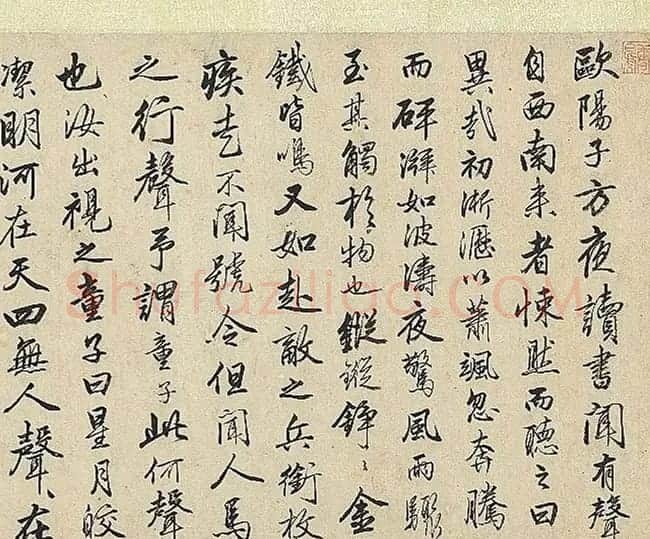 歐陽子方夜讀書聞有聲
自西南来者悚然而聽之曰
異哉初淅瀝以蕭颯忽奔騰
而砰湃如波濤夜驚風雨驟
至其觸於物也鏦鏦錚〻金
鐵皆鳴又如赴敵之兵銜枚
疾走不聞號令但聞人馬
之行聲予謂童子此何聲
也汝出視之童子曰星月皎
潔明河在天四無人聲〻在
Shufaziliao.COM